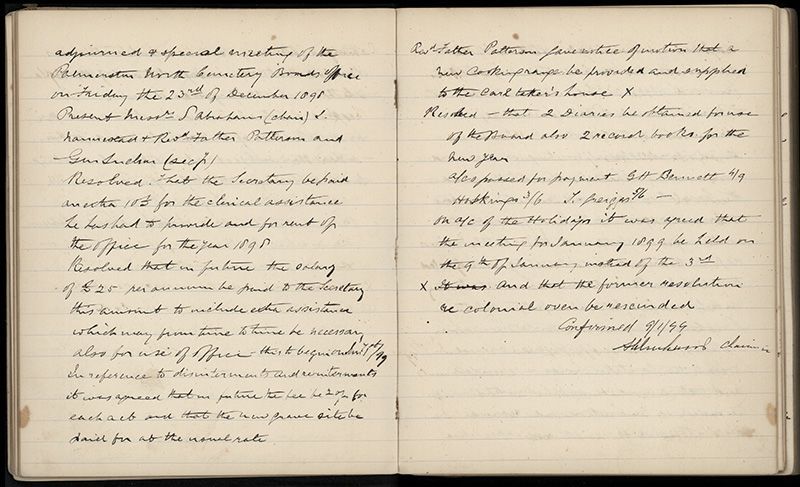 adjourned & special meeting of the
Palmerston North Cemetery Boards office
on Friday the 23rd of December 1898
Present Messrs S Abrahams (chair) L
Hammond & Revd Father Patterson and
(secy)
Resolved That the Secretary be paid
an extra 10£ for the clerical assistance
he has had to provide and for rent of
the office for the year 1898
Resolved that in future the salary
of £25 per annum be paid to the Secretary
this amount to include extra assistance
which may from time to time be necessary
also for use of office this to begin on 1/99
In reference to disinterments and reinterments
it was agreed that in future the fee be 20/- for
each act and that the new grave site be
paid for at the usual rate
Revd Father Patterson gave notice of motion that a
new cooking range be provided and supplied
to the caretaker's house X
Resolved - that 2 Diaries be obtained for use
of the Board also 2 record books for the
new year
a/cs passed for payment Bennett /9
Hoskings /6 /6 -
on a/c of the Holidays it was agreed that
the meeting for January 1899 be held on
the 9th of January instead of the 3rd
X It was and that the former resolution
re colonial oven be rescinded
Confirmed 9/1/99
Chairman